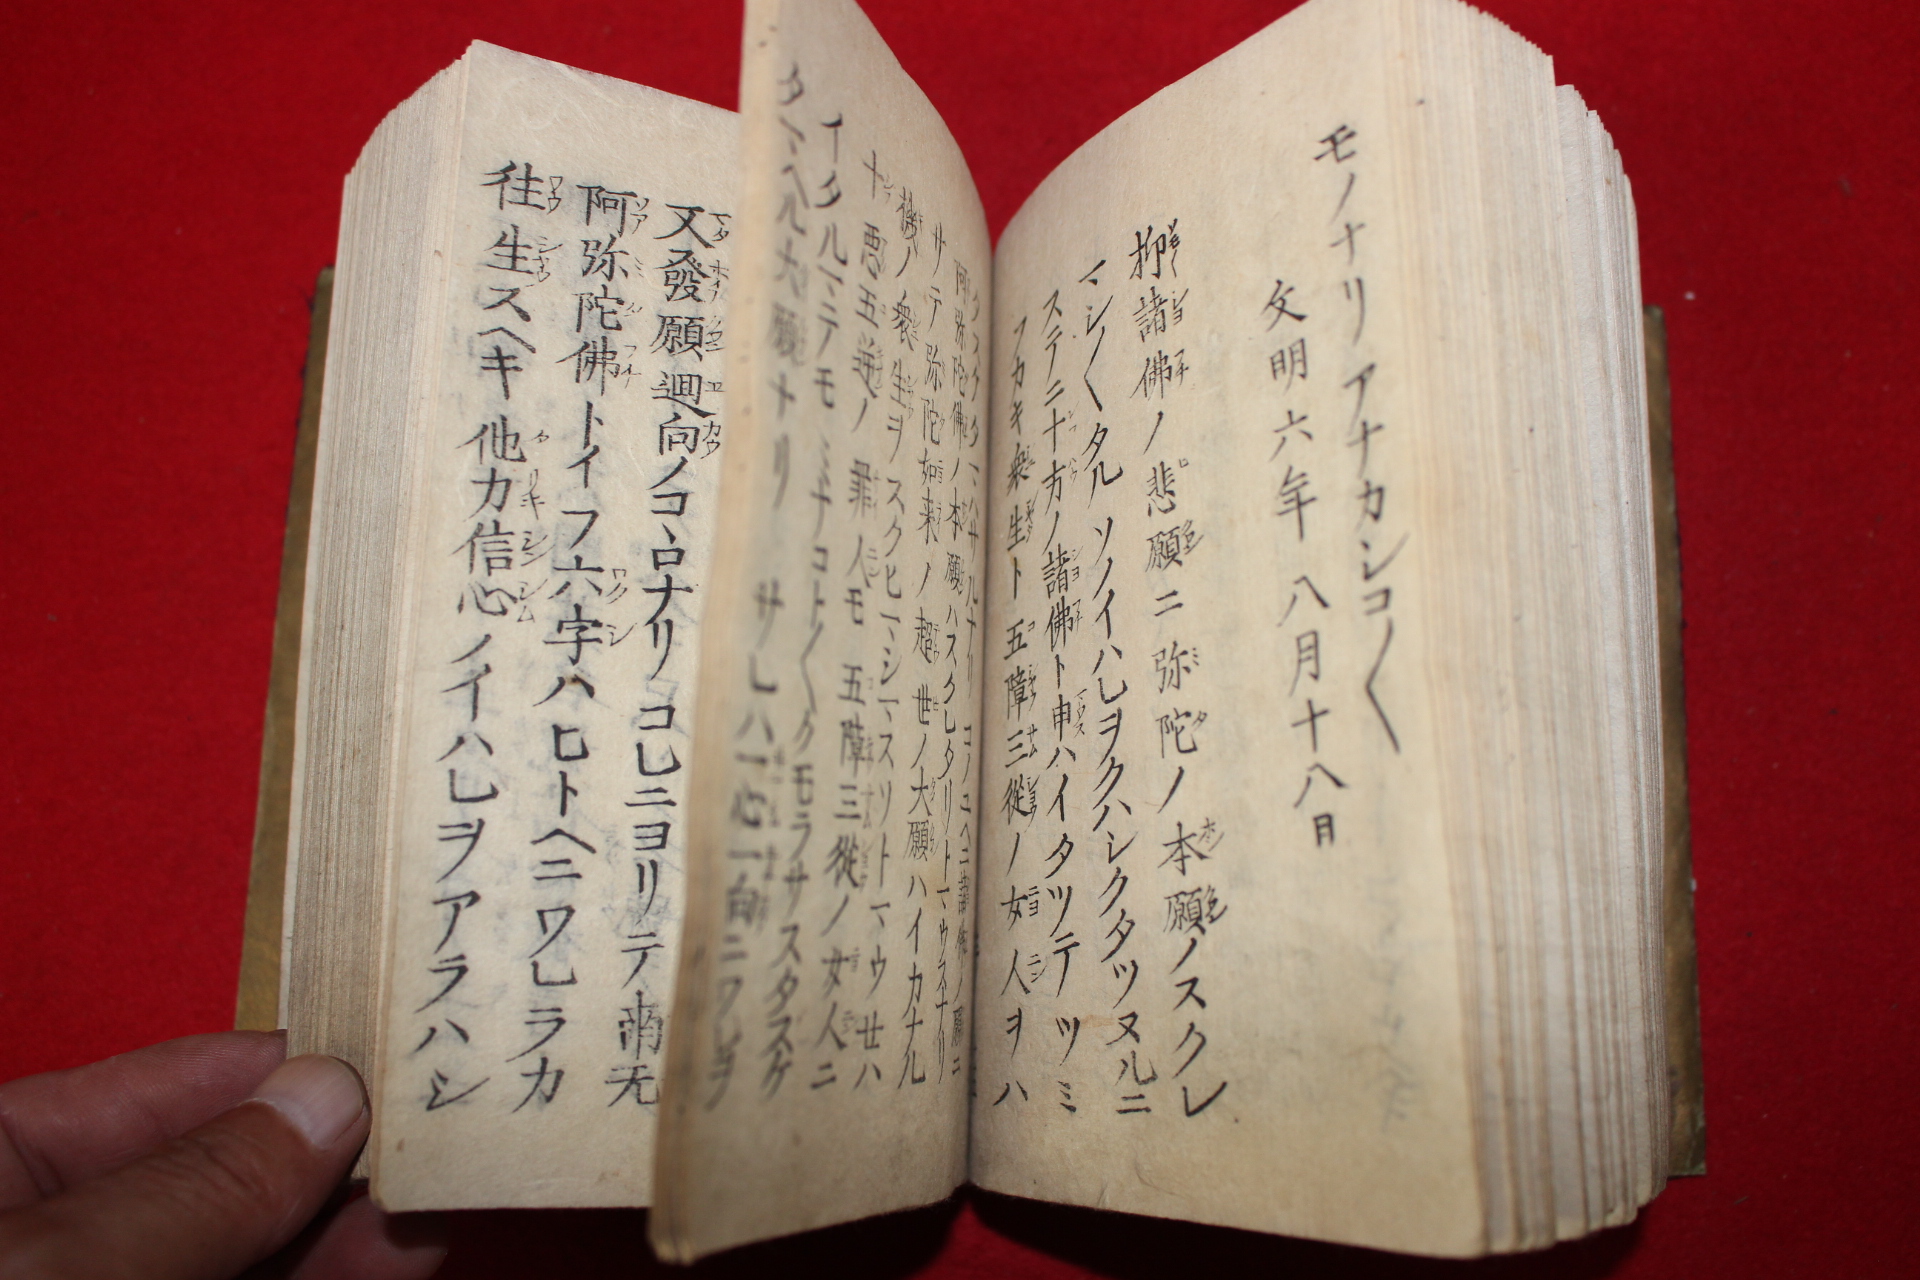 モノナリアナカシコ〱
文明六年八月十八月
抑諸佛ノ悲願ニ弥陀ノ本願ノスクレ
マシ〱タルソノイハレヲクハシクタツヌルニ
ステニ十方ノ諸佛ト申ハイタツテツミ
フカキ衆生ト五障三從ノ女人ヲハ
阿弥陀佛ノ本願ハスクヒタリトマウスナリ
サテ弥陀如来ノ超世ノ大願ハイカナル
機ノ衆生ヲスクヒマシマスソトマウセハ
十悪五逆ノ罪人モ五障三從ノ女人ニ
イタルマテモミナコト〱クモラサスタスケ
タマヘル大願ナリサレハ一心一向ニワレヲ
又發願廻向ノコヽロナリコレニヨリテ南无
阿弥陀佛トイフ六字ハヒトヘニワレラカ
往生スヘキ他力信心ノイハレヲアラハシ